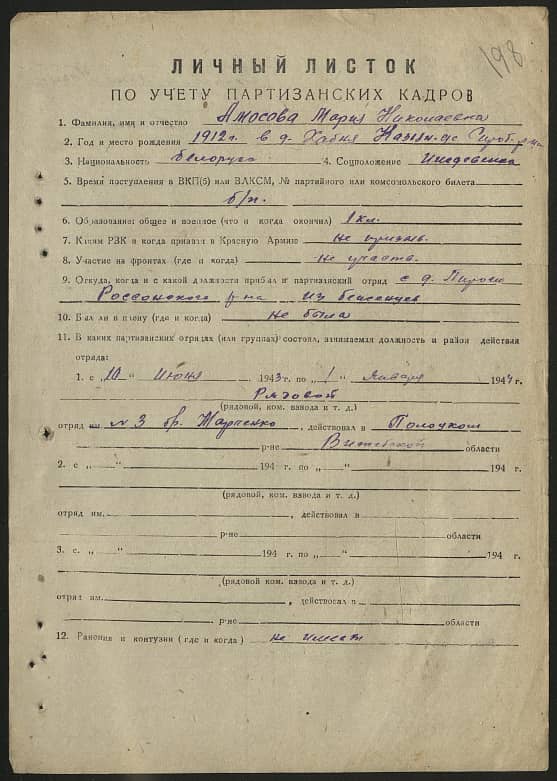 198
ЛИЧНЫЙ ЛИСТОК
ПО УЧЕТУ ПАРТИЗАНСКИХ КАДРОВ
1. Фамилия, имя и отчество Амосова Мария Николаевна
2. Год и место рождения 1912 г. в д.
3. Национальность белорус 4. Соцположение
5. Время поступления в ВКП(б) или ВЛКСМ, № партийного или комсомольского билета
б/п.
6. Образование: общее и военное (что и когда окончил) 1 кл.
7. Каким РВК и когда призван в Красную Армию не призыв.
8. Участие на фронтах (где и когда) не участв.
9. Откуда, когда и с какой должности прибыл в партизанский отряд с д.
Россонского р-на из беженцев
10. Был ли в плену (где и когда) не была
11. В каких партизанских отрядах (или группах) состоял, занимаемая должность и район действия
отряда:
1. с „10" Июня 1943 г. по „1" января 1944 г.
Рядовой
(рядовой, ком. взвода и т. д.)
отряд им. № 3 бр. , действовал в Полоцком
р-не Витебской области
2. с „ " 194 г. по „ " 194 г.
(рядовой, ком. взвода и т. д.)
отряд им. , действовал в
р-не области
3. с „ " 194 г. по „ " 194 г.
(рядовой, ком. взвода и т. д.)
отряд им. , действовал в
р-не области
12. Ранения и контузии (где и когда) не имеет